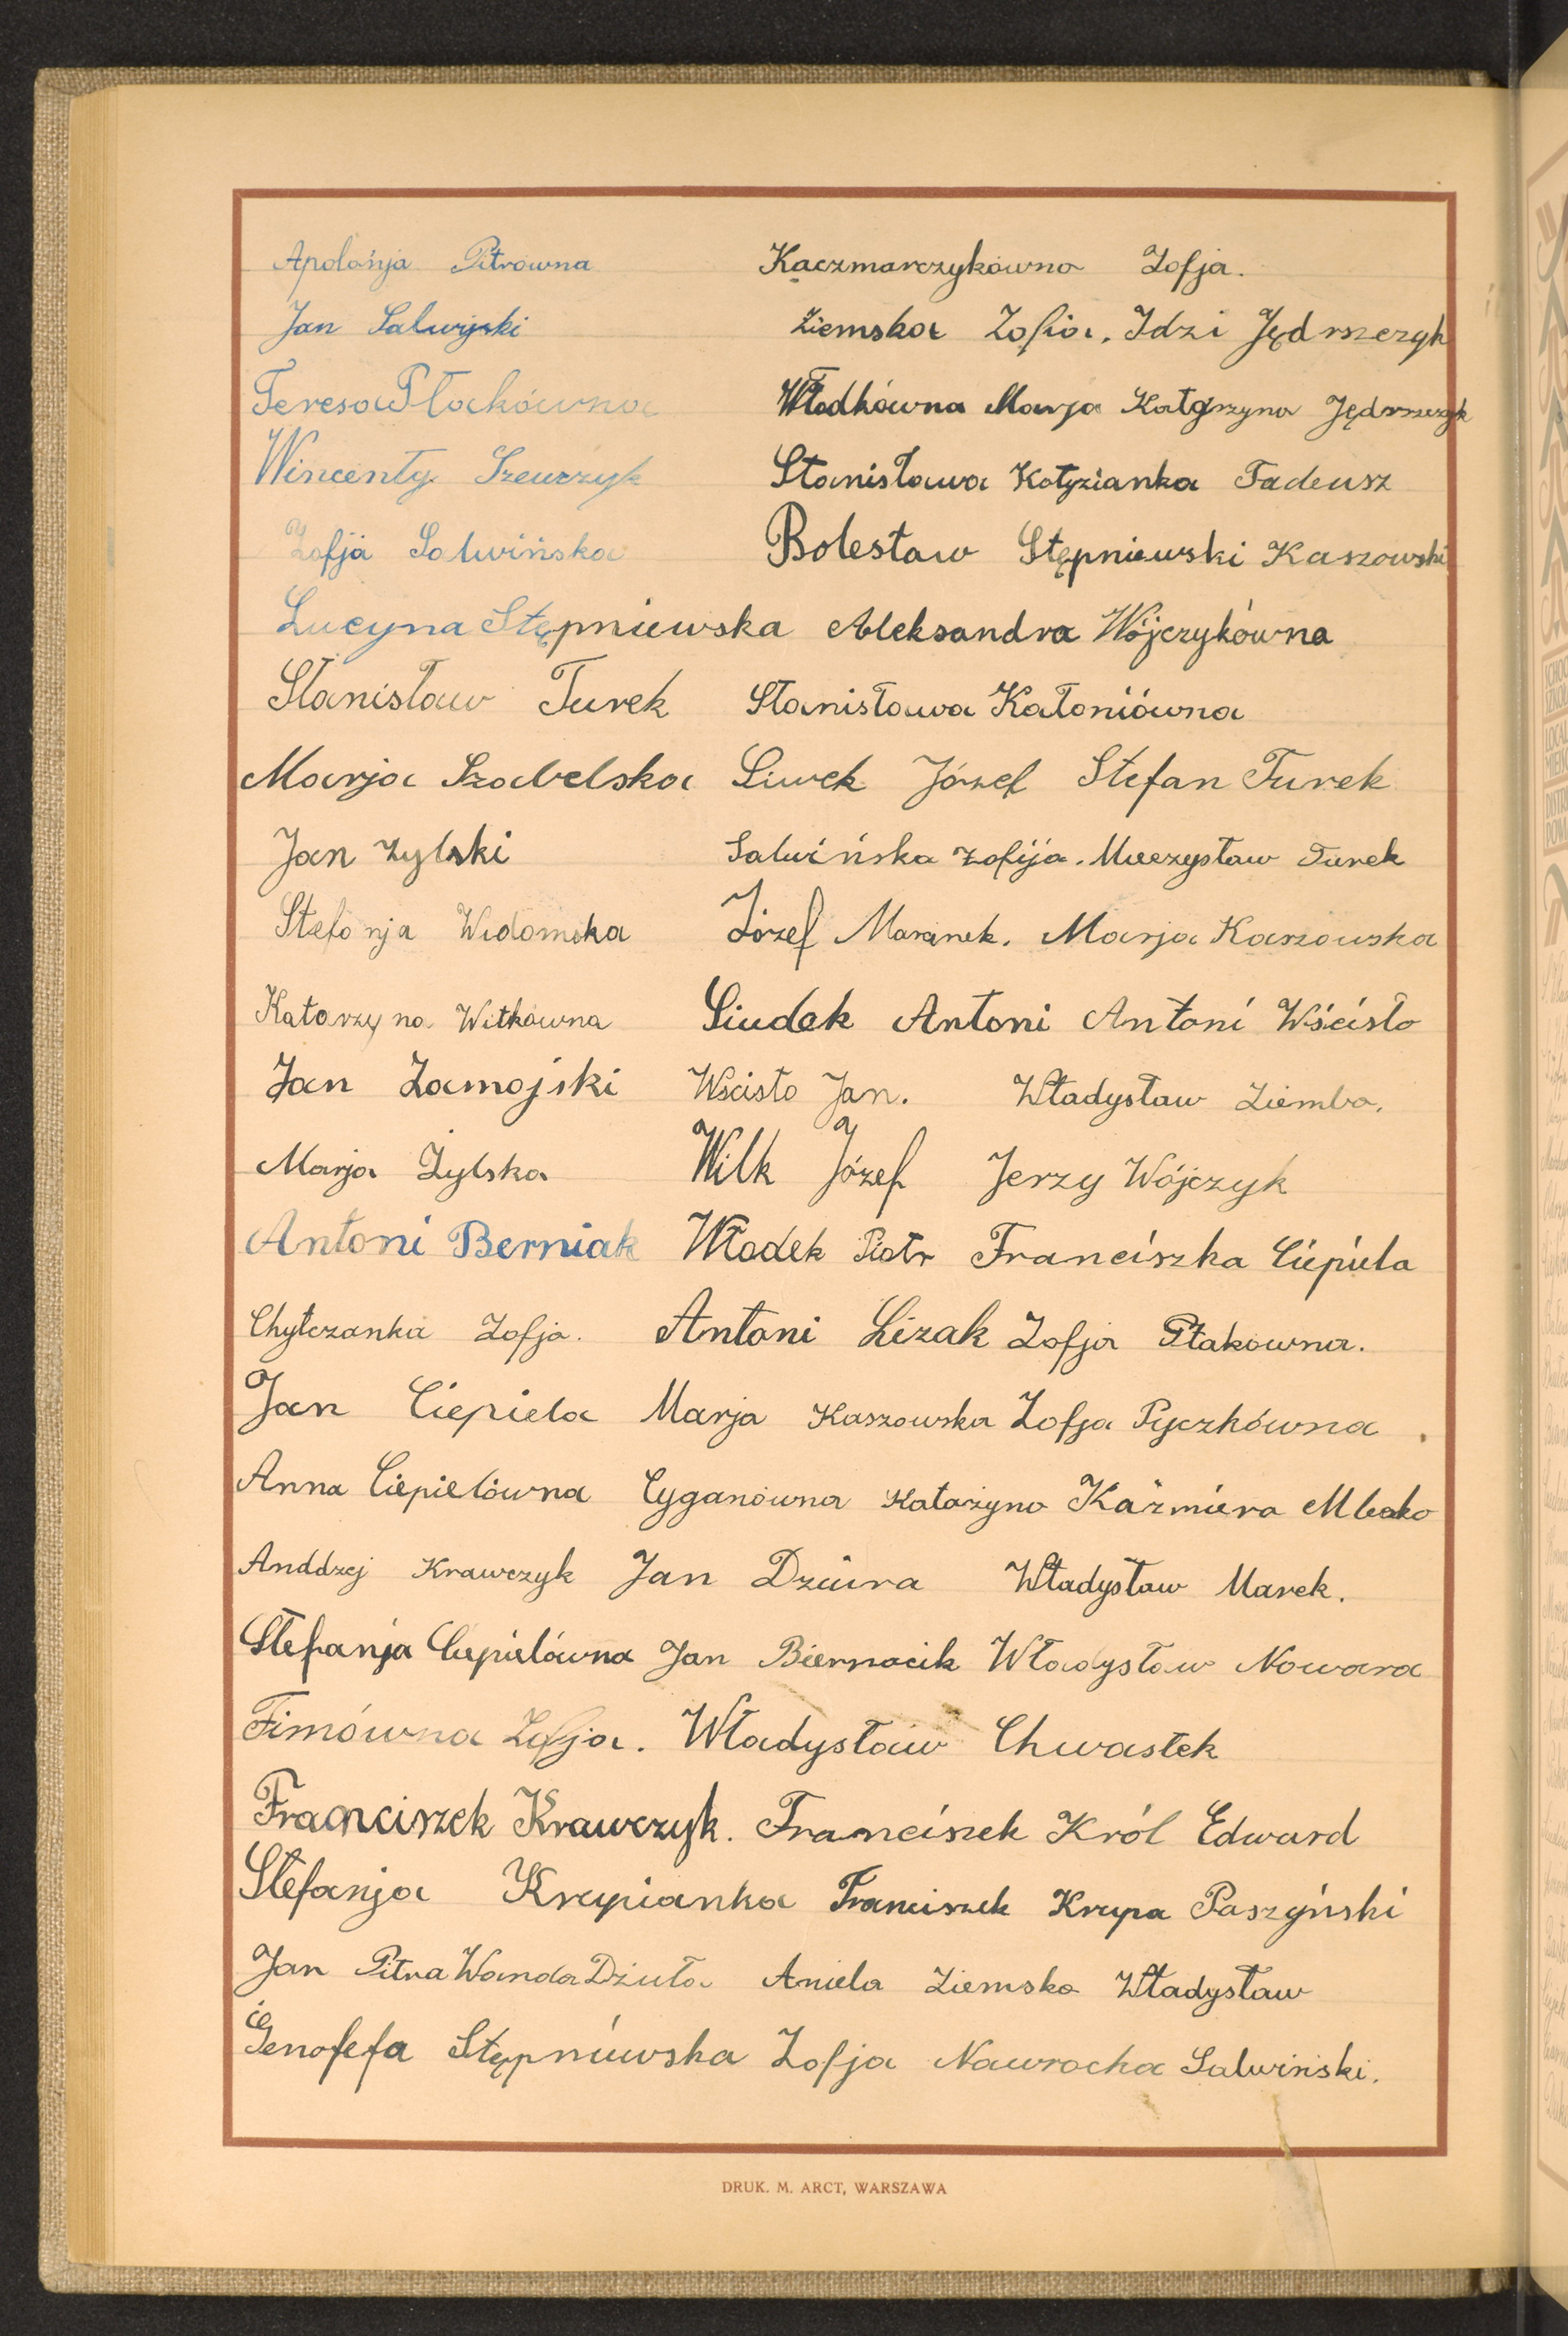 Apolonja Pitrówna Kaczmarczykówna Zofja.
Jan Salwijski Ziemska Zofia. Idzi Jędrszczyk
Teresa Płachówna Włodkówna Marja Katarzyna Jędrszczyk
Wincenty Szewczyk Stanisława Kołyzianka Tadeusz
Zofja Salwińska Bolesław Stępniewski Kaszowski
Lucyna Stępniewska Aleksandra Wójczykówna
Stanisław Turek Stanisława Katoniówna
Marja Szabelska Siwek Józef Stefan Turek
Jan Zylski Salwińska Zofija. Mieczysław Turek
Stefanja Widomska Józef Maranek. Marja Kaszowska
Katarzyna Witkówna Siudek Antoni Antoni Wścisło
Jan Zamojski Wścisło Jan. Władysław Ziemba.
Marja Żylska Wilk Józef Jerzy Wójczyk
Antoni Berniak Włodek Piotr Franciszka Ciepiela
Chytczanka Zofja. Antoni Lizak Zofja Ptakowna.
Jan Ciepiela Marja Kaszowska Zofja Pyczkówna
Anna Ciepielówna Cyganówna Katażyna Kaźmiera Mleko
Anddrzej Krawczyk Jan Dziura Władysław Marek.
Stefanja Ciepielówna Jan Biernacik Władysław Nowara
Fimówna Zofja. Władysław Chwastek
Franciszek Krawczyk. Franciszek Król Edward
Stefanja Krupianka Franciszek Krupa Paszyński
Jan Pitra Wanda Dziuła Aniela Ziemska Władysław
Genofefa Stępniewska Zofja Nawrocka Salwiński.
DRUK. M. ARCT, WARSZAWA